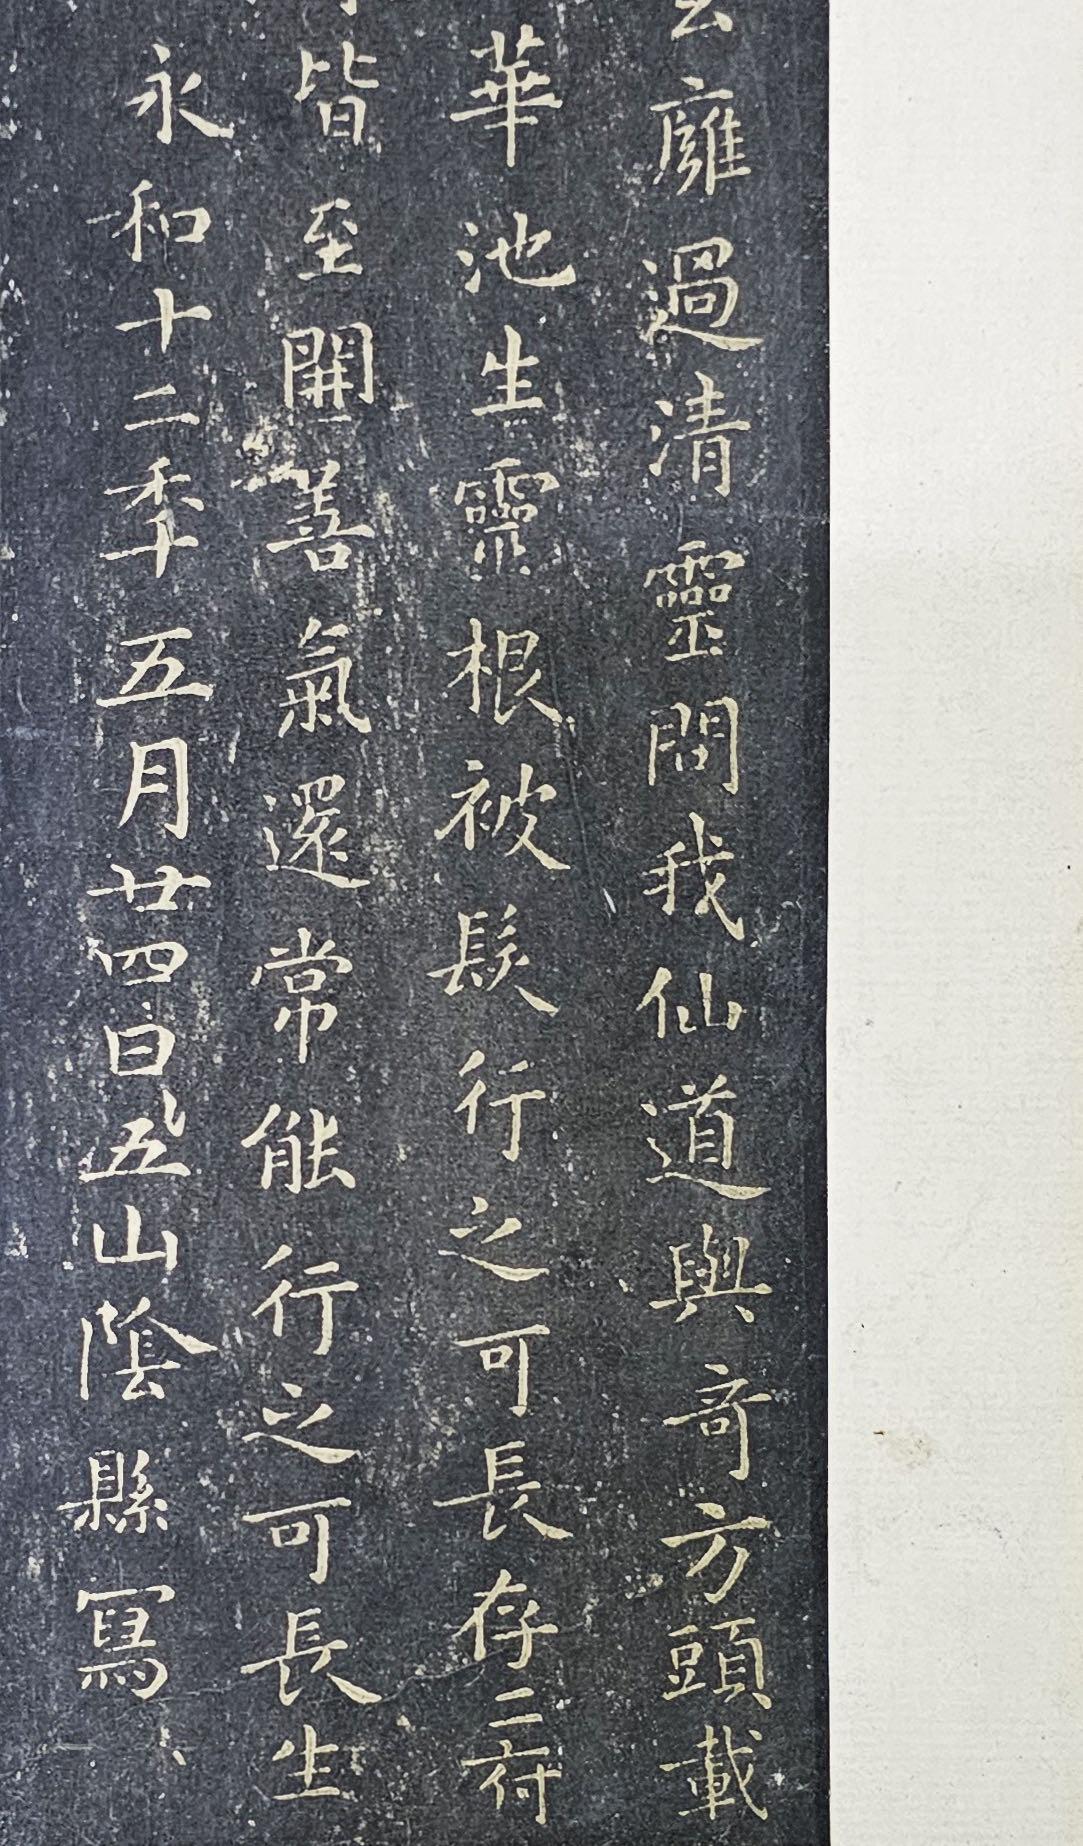 廱過清靈問我仙道與奇方頭載
華池生靈根被髮行之可長存二府
皆至開善氣還常能行之可長生
永和十二秊五月廿四日五山陰縣寫